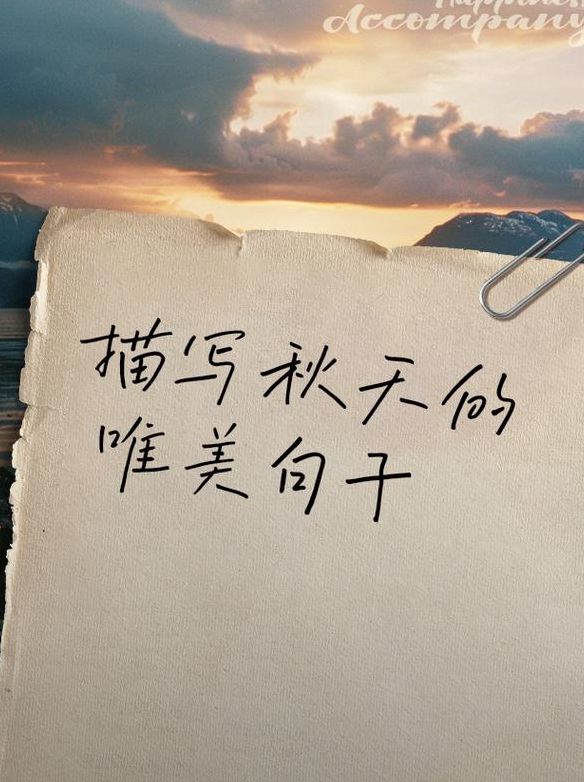 Happiness
Accompany
描写秋天的
唯美句子